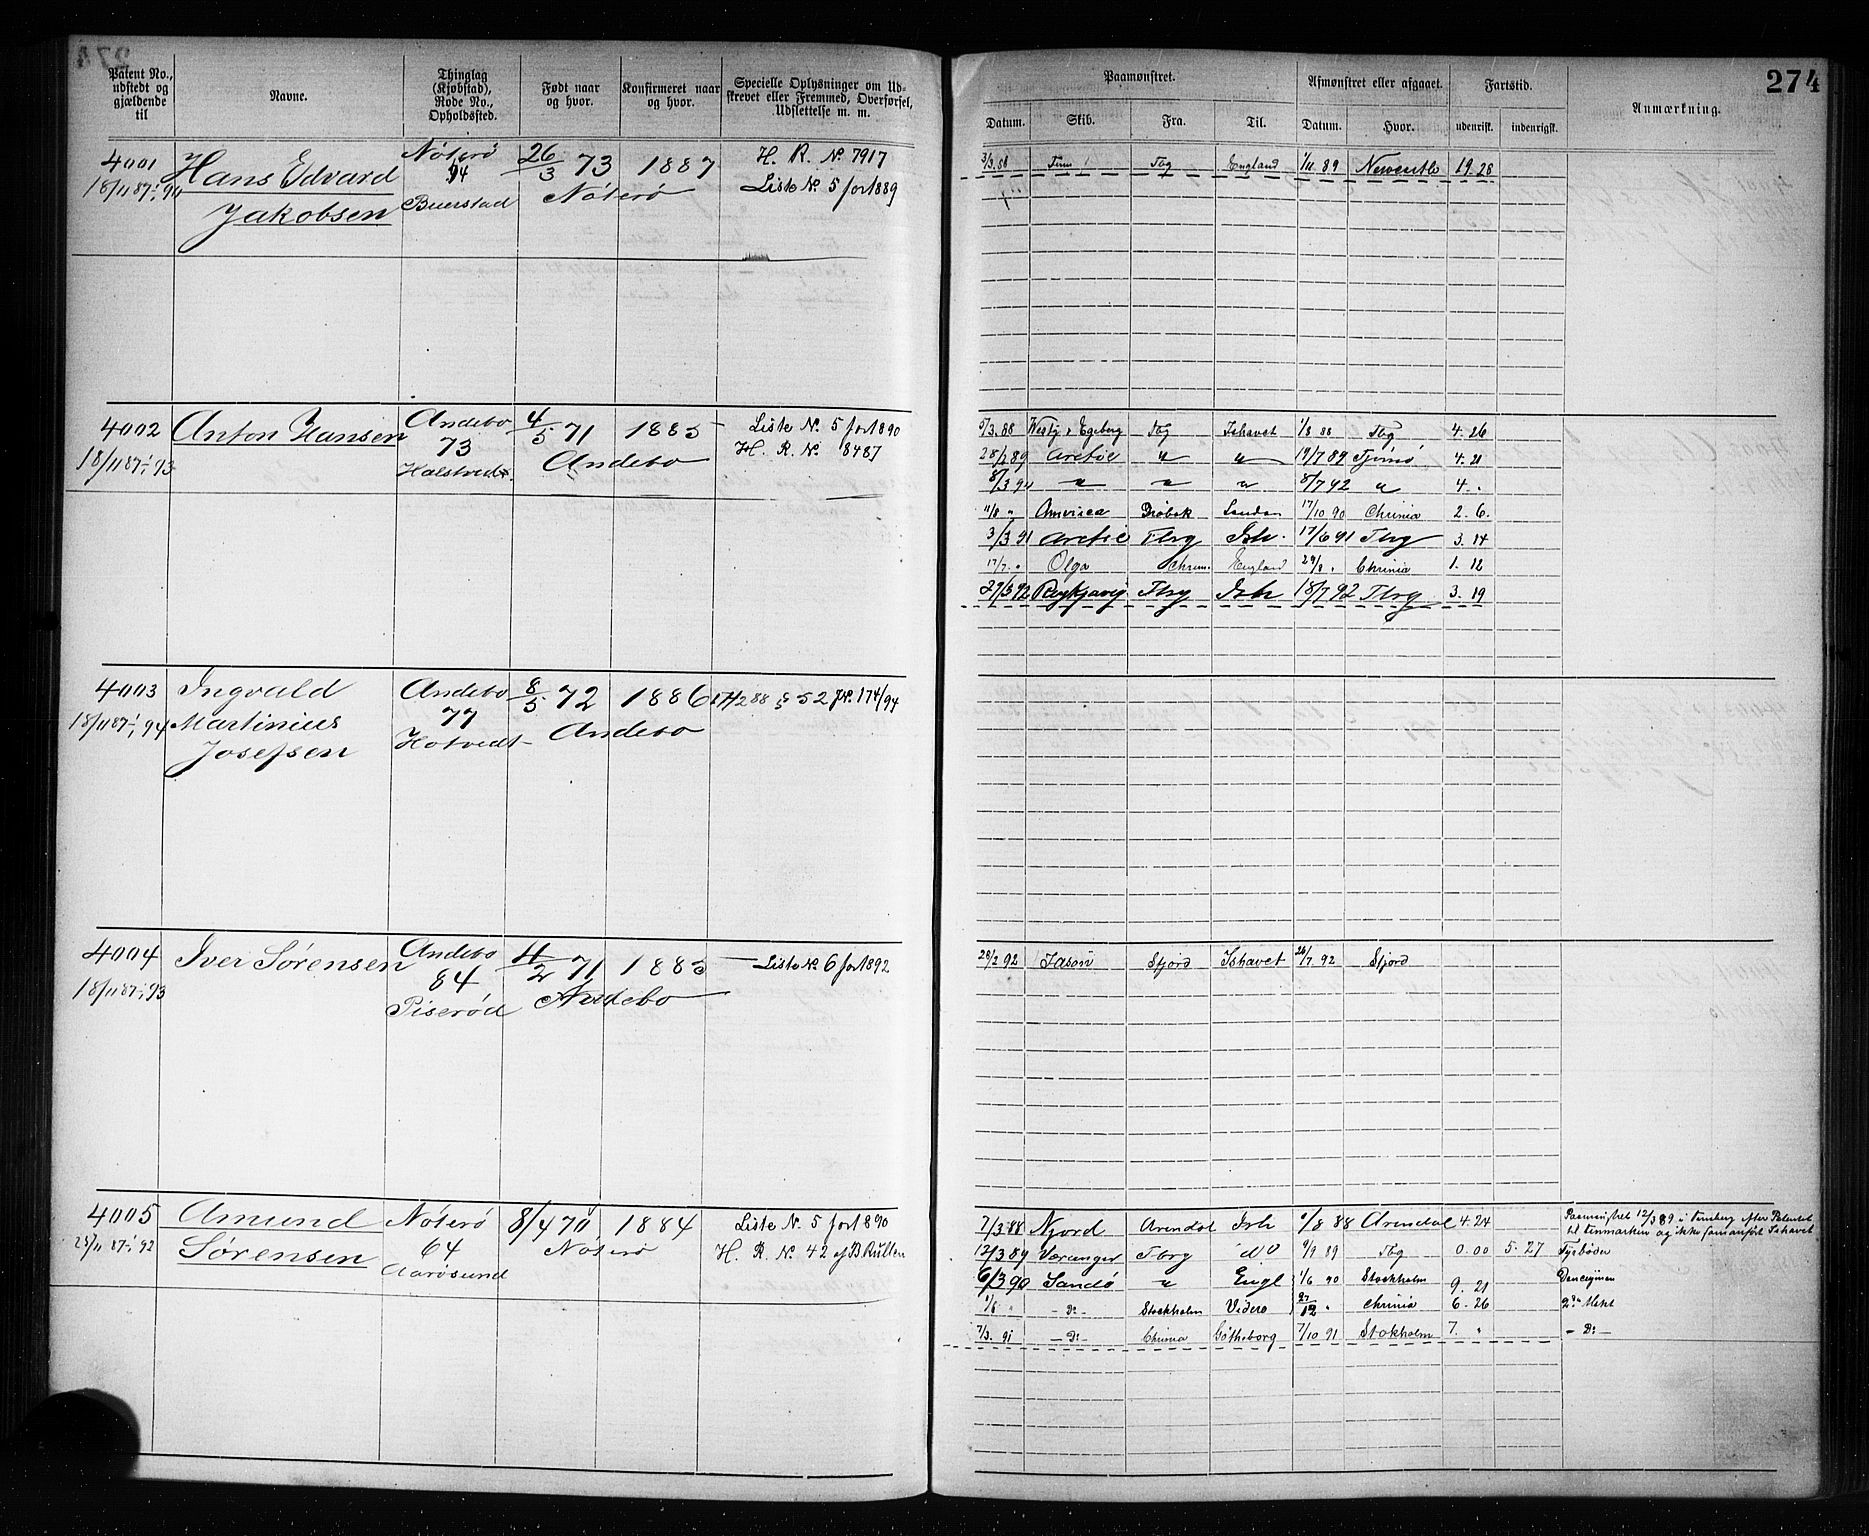 274
Patent No., udstedt og gjældende til
Navne.
Thinglag (Kjøbstad), Rode No., Opholdssted.
Født naar og hvor.
Konfirmeret naar og hvor.
Specielle Oplysninger om Udskrevet eller Fremmed, Overførsel, Udslettelse m. m.
Paamønstret.
Afmønstret eller afgaaet.
Fartstid.
Anmærkning.
Datum. Skib. Fra. Til. Datum. Hvor. udenrisk. indenrigsk.
4001 Hans Edvard Nøterø 26/3 73 1887 H. R. No 7917
94
18/11 87-1/1 90 Jakobsen Buerstad Nøterø Liste No 5 for 1889
3/3 88 Tbg England 1/11 89 Newcastle 19. 28
4002 Anton Hansen Andebo 4/5 71 1885 Liste No 5 for 1890
73 H. R. No 8487
18/11 87-1/1 93 Halstvedt. Andebo
Tbg Ishavet 1/8 88 Tbg 4. 26
28/2 89 Arctic " " 19/7 89 Tjømø 4. 21
8/3 90 " " " 8/7 92 " 4. "
11/8 " America Drøbak London 17/10 90 Chrinia 2. 6.
3/3 91 Arctic Tbrg Ish. 17/6 91 Tbrg 3. 14
17/7. " Olga Chran. England 29/8 " Chrinia 1. 12
29/3 92 Reykjavig Tbrg Ish 18/7 92 Tbrg 3. 19
4003 Ingvald Andebo 8/5 72 1886 17/12 88 § 52 JNo. 174/94
77
18/11 87-1/1 94 Martinius Hotvedt Andebo
Josefsen
4004 Iver Sørensen Andebo 11/2 71 1885 Liste No 6 for 1892
84
18/11 87-1/1 93 Piserød Andebo
29/2 92 Jason Sfjord Ishavet 26/7 92 Sfjord
4005 Amund Nøterø 8/4 70 1884 Liste No. 5 for 1890
64
Sørensen Nøterø H. R. No 42 af B. Rullen
23/11 87-1/1 92 Aarøsund
7/3 88 Njord Arendal Ish 9/8 88 Arendal 4. 24 Paamønstret 12/3 89 i Tønsberg efter Patentet
til Finmarken og ikke som anført Ishavet
12/3 89 Væranger Tbrg do 9/9 89 Tbg 0. 00 5. 27 Fyrbøder
6/3 90 Sandø " Engl 1/6 90 Stockholm 9. 21 Donceyman
1/6 " - Do - Stockholm Viderø 27/12 " Chrinia 6. 26
7/3. 91 - Do - Chrinia Gøtheborg 7/10 91 Stokholm 7. " - Do -